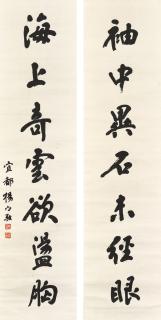 袖中異石未經眼
海上奇雲欲盪胸
宜都楊守敬